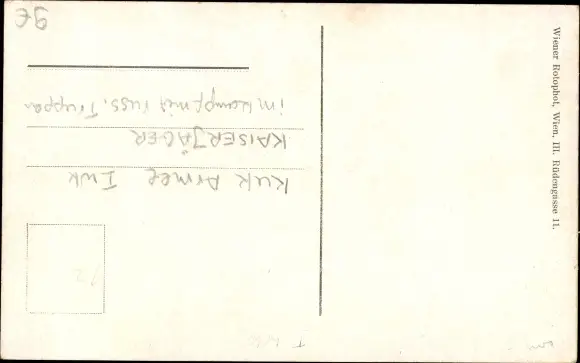 KuK Armee I WK
KAISERJÄGER
im Kampf mit russ. Truppen
9€
12
Wiener Rotophot, Wien, III. Rüdengasse 11.